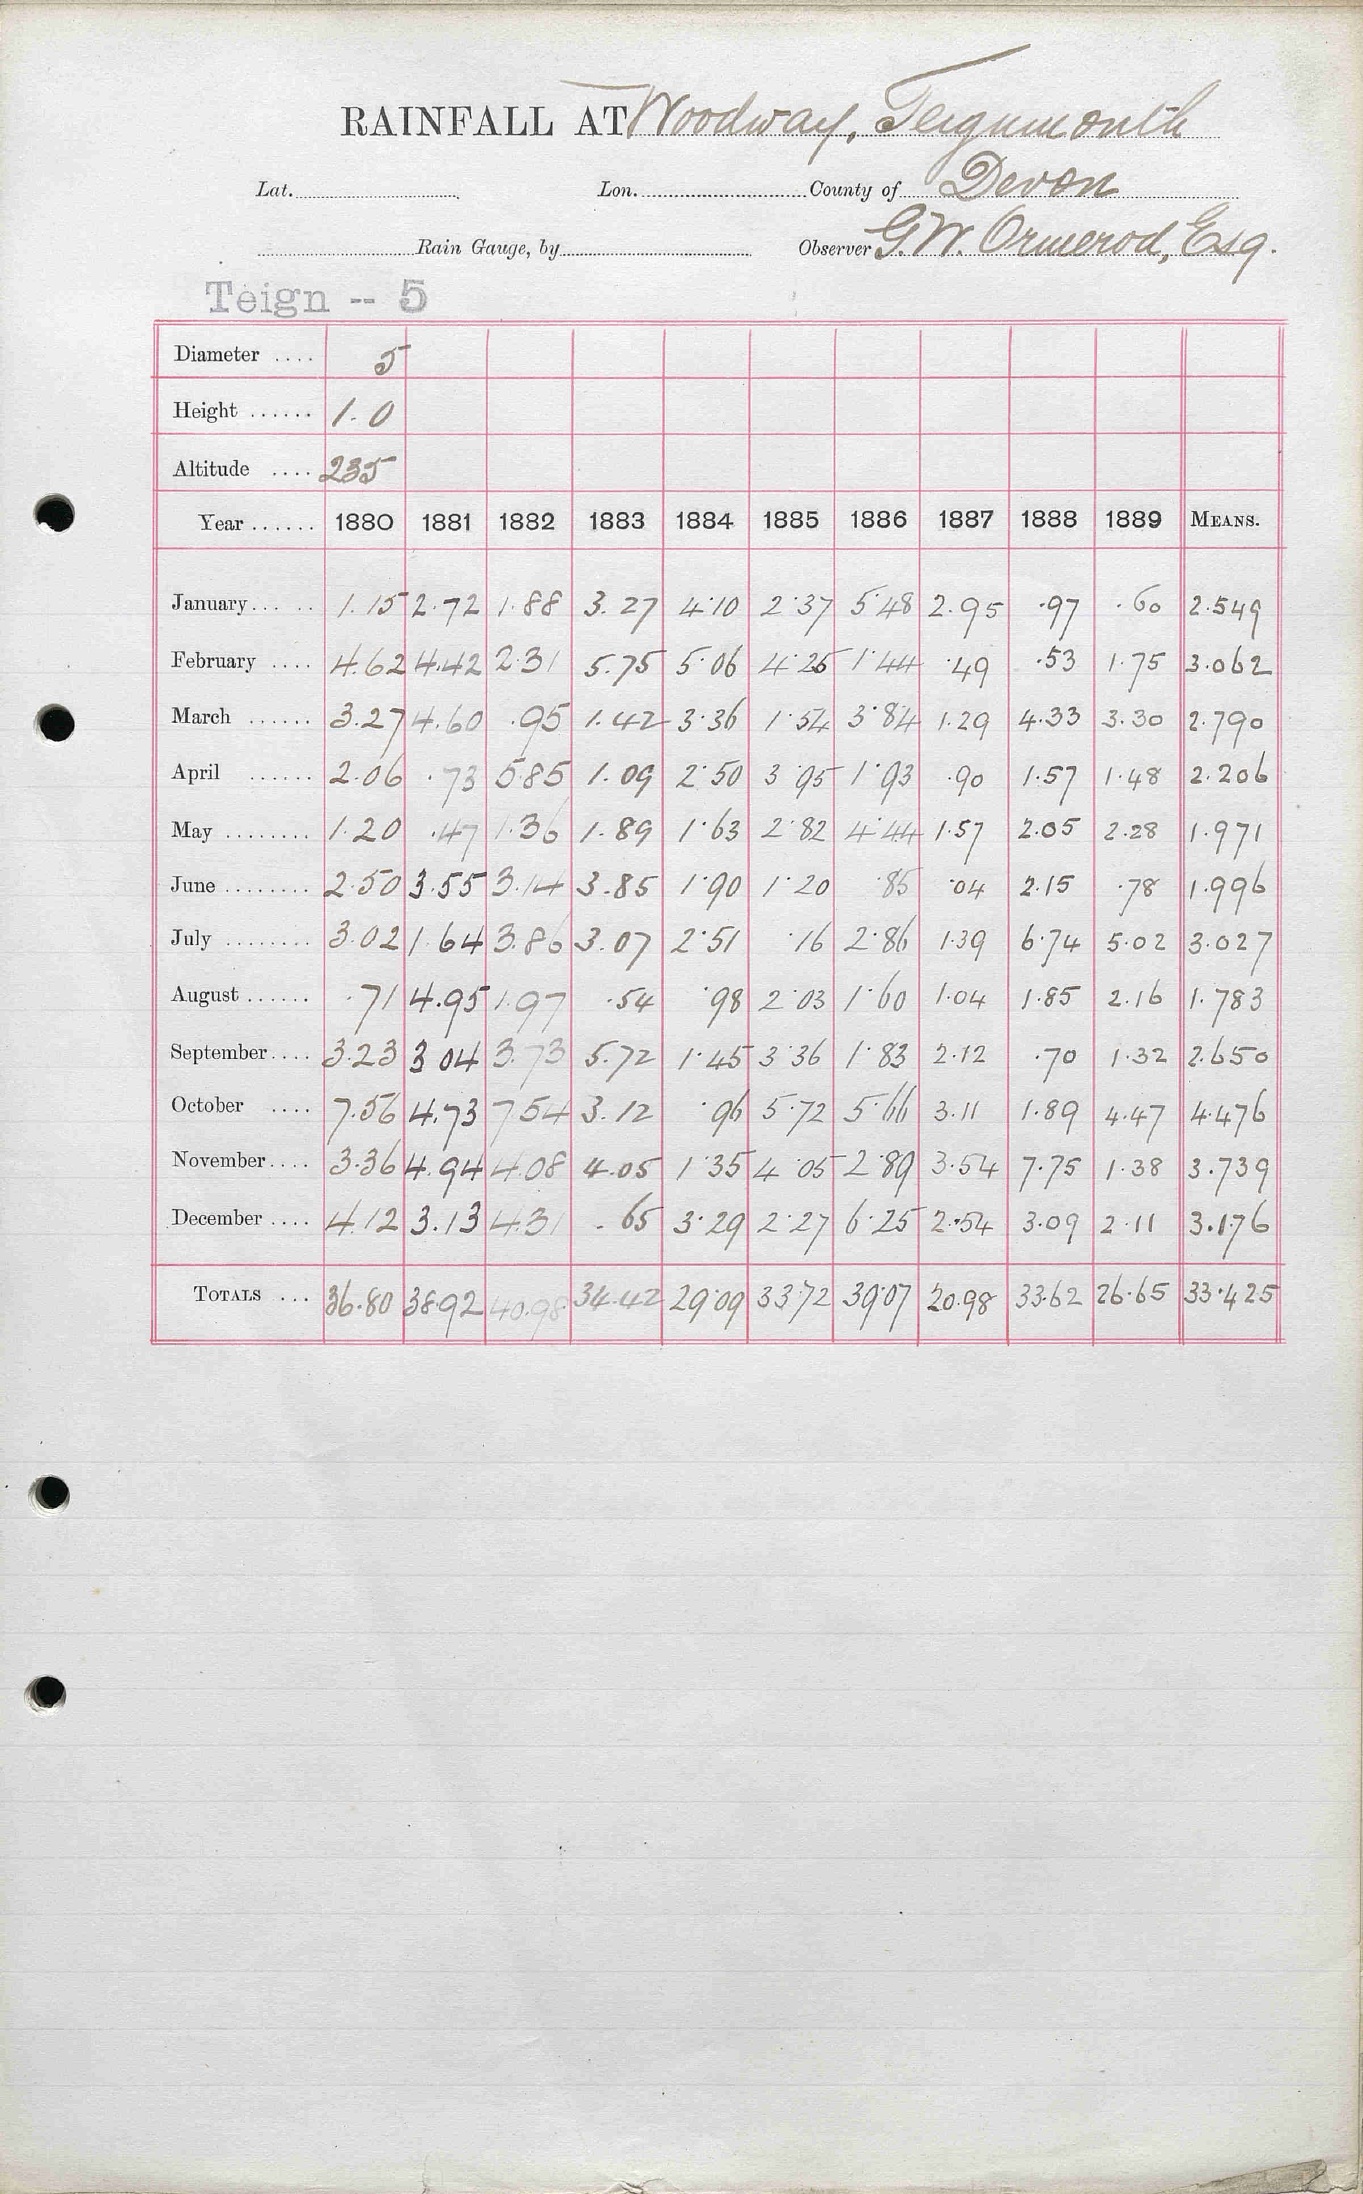 RAINFALL AT Woodway, Teignmouth
Lat. Lon. County of Devon
Rain Gauge, by Observer G. W. Ormerod, Esq.
Teign -- 5
Diameter .... 5
Height ...... 1.0
Altitude .... 235
Year ...... 1880 1881 1882 1883 1884 1885 1886 1887 1888 1889 MEANS.
January ... .. 1.15 2.72 1.88 3.27 4.10 2.37 5.48 2.95 .97 .60 2.549
February .... 4.62 4.42 2.31 5.75 5.06 4.25 1.44 .49 .53 1.75 3.062
March ...... 3.27 4.60 .95 1.42 3.36 1.54 3.84 1.29 4.33 3.30 2.790
April ...... 2.06 .73 5.85 1.09 2.50 3.95 1.93 .90 1.57 1.48 2.206
May ........ 1.20 .47 1.36 1.89 1.63 2.82 4.44 1.57 2.05 2.28 1.971
June ........ 2.50 3.55 3.14 3.85 1.90 1.20 .85 .04 2.15 .78 1.996
July ........ 3.02 1.64 3.86 3.07 2.51 .16 2.86 1.39 6.74 5.02 3.027
August ...... .71 4.95 1.97 .54 .98 2.03 1.60 1.04 1.85 2.16 1.783
September .... 3.23 3 04 3.73 5.72 1.45 3.36 1.83 2.12 .70 1.32 2.650
October .... 7.56 4.73 7.54 3.12 .96 5.72 5.66 3.11 1.89 4.47 4.476
November .... 3.36 4.94 4.08 4.05 1.35 4.05 2.89 3.54 7.75 1.38 3.739
December .... 4.12 3.13 4.31 .65 3.29 2.27 6.25 2.54 3.09 2.11 3.176
TOTALS ... 36.80 38.92 40.98 34.42 29.09 33.72 39.07 20.98 33.62 26.65 33.425